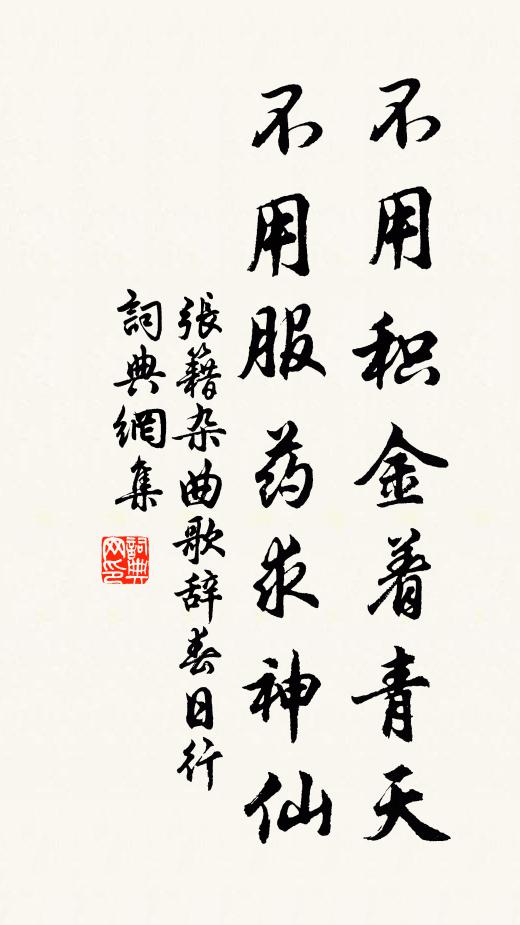 不用积金着青天
不用服药求神仙
張籍杂曲歌辞春日行
詞典網集
詞典網印